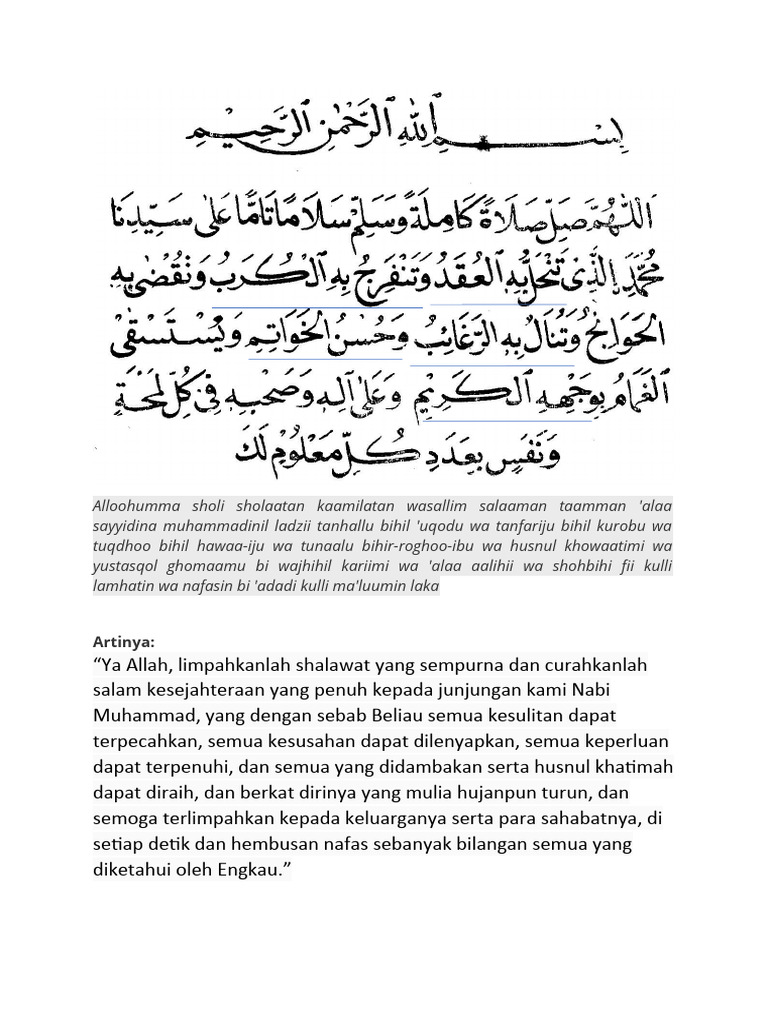 بِسْمِ اللهِ الرَّحْمٰنِ الرَّحِيْمِ
اَللّٰهُمَّ صَلِّ صَلَاةً كَامِلَةً وَسَلِّمْ سَلَامًا تَامًّا عَلٰى سَيِّدِنَا
مُحَمَّدِ اِلَّذِيْ تَنْحَلُّ بِهِ الْعُقَدُ وَتَنْفَرِجُ بِهِ الْكُرَبُ وَتُقْضٰى بِهِ
الْحَوَائِجُ وَتُنَالُ بِهِ الرَّغَائِبُ وَحُسْنُ الْخَوَاتِمِ وَيُسْتَسْقَى
الْغَمَامُ بِوَجْهِهِ الْكَرِيْمِ وَعَلٰى اٰلِهِ وَصَحْبِهِ فِيْ كُلِّ لَمْحَةٍ
وَنَفَسٍ بِعَدَدِ كُلِّ مَعْلُوْمٍ لَكَ
Alloohumma sholi sholaatan kaamilatan wasallim salaaman taamman 'alaa
sayyidina muhammadinil ladzii tanhallu bihil 'uqodu wa tanfariju bihil kurobu wa
tuqdhoo bihil hawaa-iju wa tunaalu bihir-roghoo-ibu wa husnul khowaatimi wa
yustasqol ghomaamu bi wajhihil kariimi wa 'alaa aalihii wa shohbihi fii kulli
lamhatin wa nafasin bi 'adadi kulli ma'luumin laka
Artinya:
“Ya Allah, limpahkanlah shalawat yang sempurna dan curahkanlah
salam kesejahteraan yang penuh kepada junjungan kami Nabi
Muhammad, yang dengan sebab Beliau semua kesulitan dapat
terpecahkan, semua kesusahan dapat dilenyapkan, semua keperluan
dapat terpenuhi, dan semua yang didambakan serta husnul khatimah
dapat diraih, dan berkat dirinya yang mulia hujanpun turun, dan
semoga terlimpahkan kepada keluarganya serta para sahabatnya, di
setiap detik dan hembusan nafas sebanyak bilangan semua yang
diketahui oleh Engkau.”